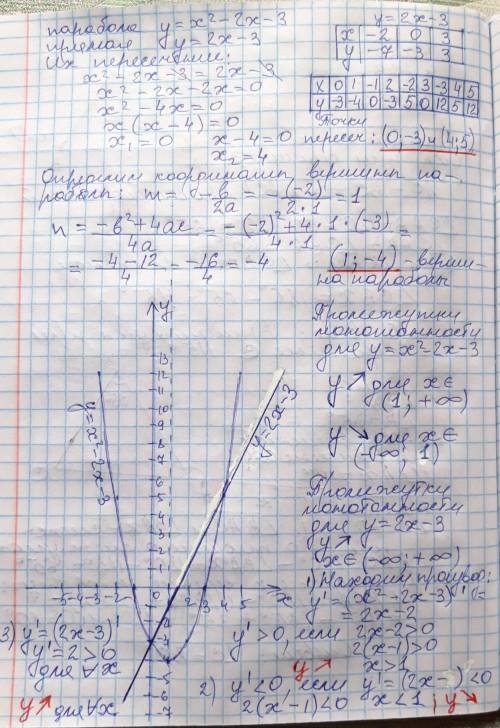 парабола y = x² - 2x - 3
прямая y = 2x - 3
Их пересечение:
x² - 2x - 3 = 2x - 3
x² - 2x - 2x = 0
x² - 4x = 0
x(x - 4) = 0
x₁ = 0 x - 4 = 0
x₂ = 4
y = 2x - 3
x -2 0 3
y -7 -3 3
x 0 1 -1 2 -2 3 -3 4 5
y -3 -4 0 -3 5 0 12 5 12
Точки
пересеч: (0; -3) и (4; 5)
Определим координаты вершины па-
раболы: m = -b/2a = -(-2)/2·1 = 1
n = (-b² + 4ac)/4a = (-(-2)² + 4·1·(-3))/4·1 =
= (-4 - 12)/4 = -16/4 = -4
(1; -4) - верши-
на параболы
Промежутки
монотонности
для y = x² - 2x - 3
y ↗ для x ∈
(1; +∞)
y ↘ для x ∈
(-∞; 1)
Промежутки
монотонности
для y = 2x - 3
y ↗
x ∈ (-∞; +∞)
1) Находим производ:
y' = (x² - 2x - 3)' =
= 2x - 2
y' > 0, если 2x - 2 > 0
2(x - 1) > 0
y ↗ x > 1
2) y' < 0, если y' = (2x - ) < 0
2(x - 1) < 0 x < 1; y ↘
3) y' = (2x - 3)'
y' = 2 > 0
для ∀x
y ↗ для ∀x
y
13
12
11
10
9
8
7
6
5
4
3
2
1
y = x² - 2x - 3
y = 2x - 3
-5 -4 -3 -2 0 1 2 3 4 5 x
-2
-3
-5
-6
-7